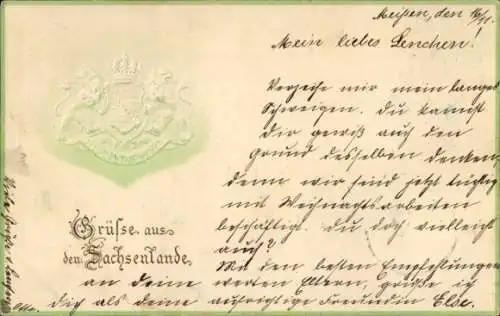 Meißen, den
Mein liebes Lenchen!
Verzeihe mir mein langes
Schweigen. Du kannst
dir gewiß auch den
Grund desselben denken,
denn wir sind jetzt tüchtig
mit Weihnachtsarbeiten
beschäftigt. Du doch vielleicht
auch?
Mit den besten Empfehlungen
an deine werten Eltern, grüße ich
dich als deine aufrichtige Freundin Else.
Grüße aus
dem Sachsenlande.